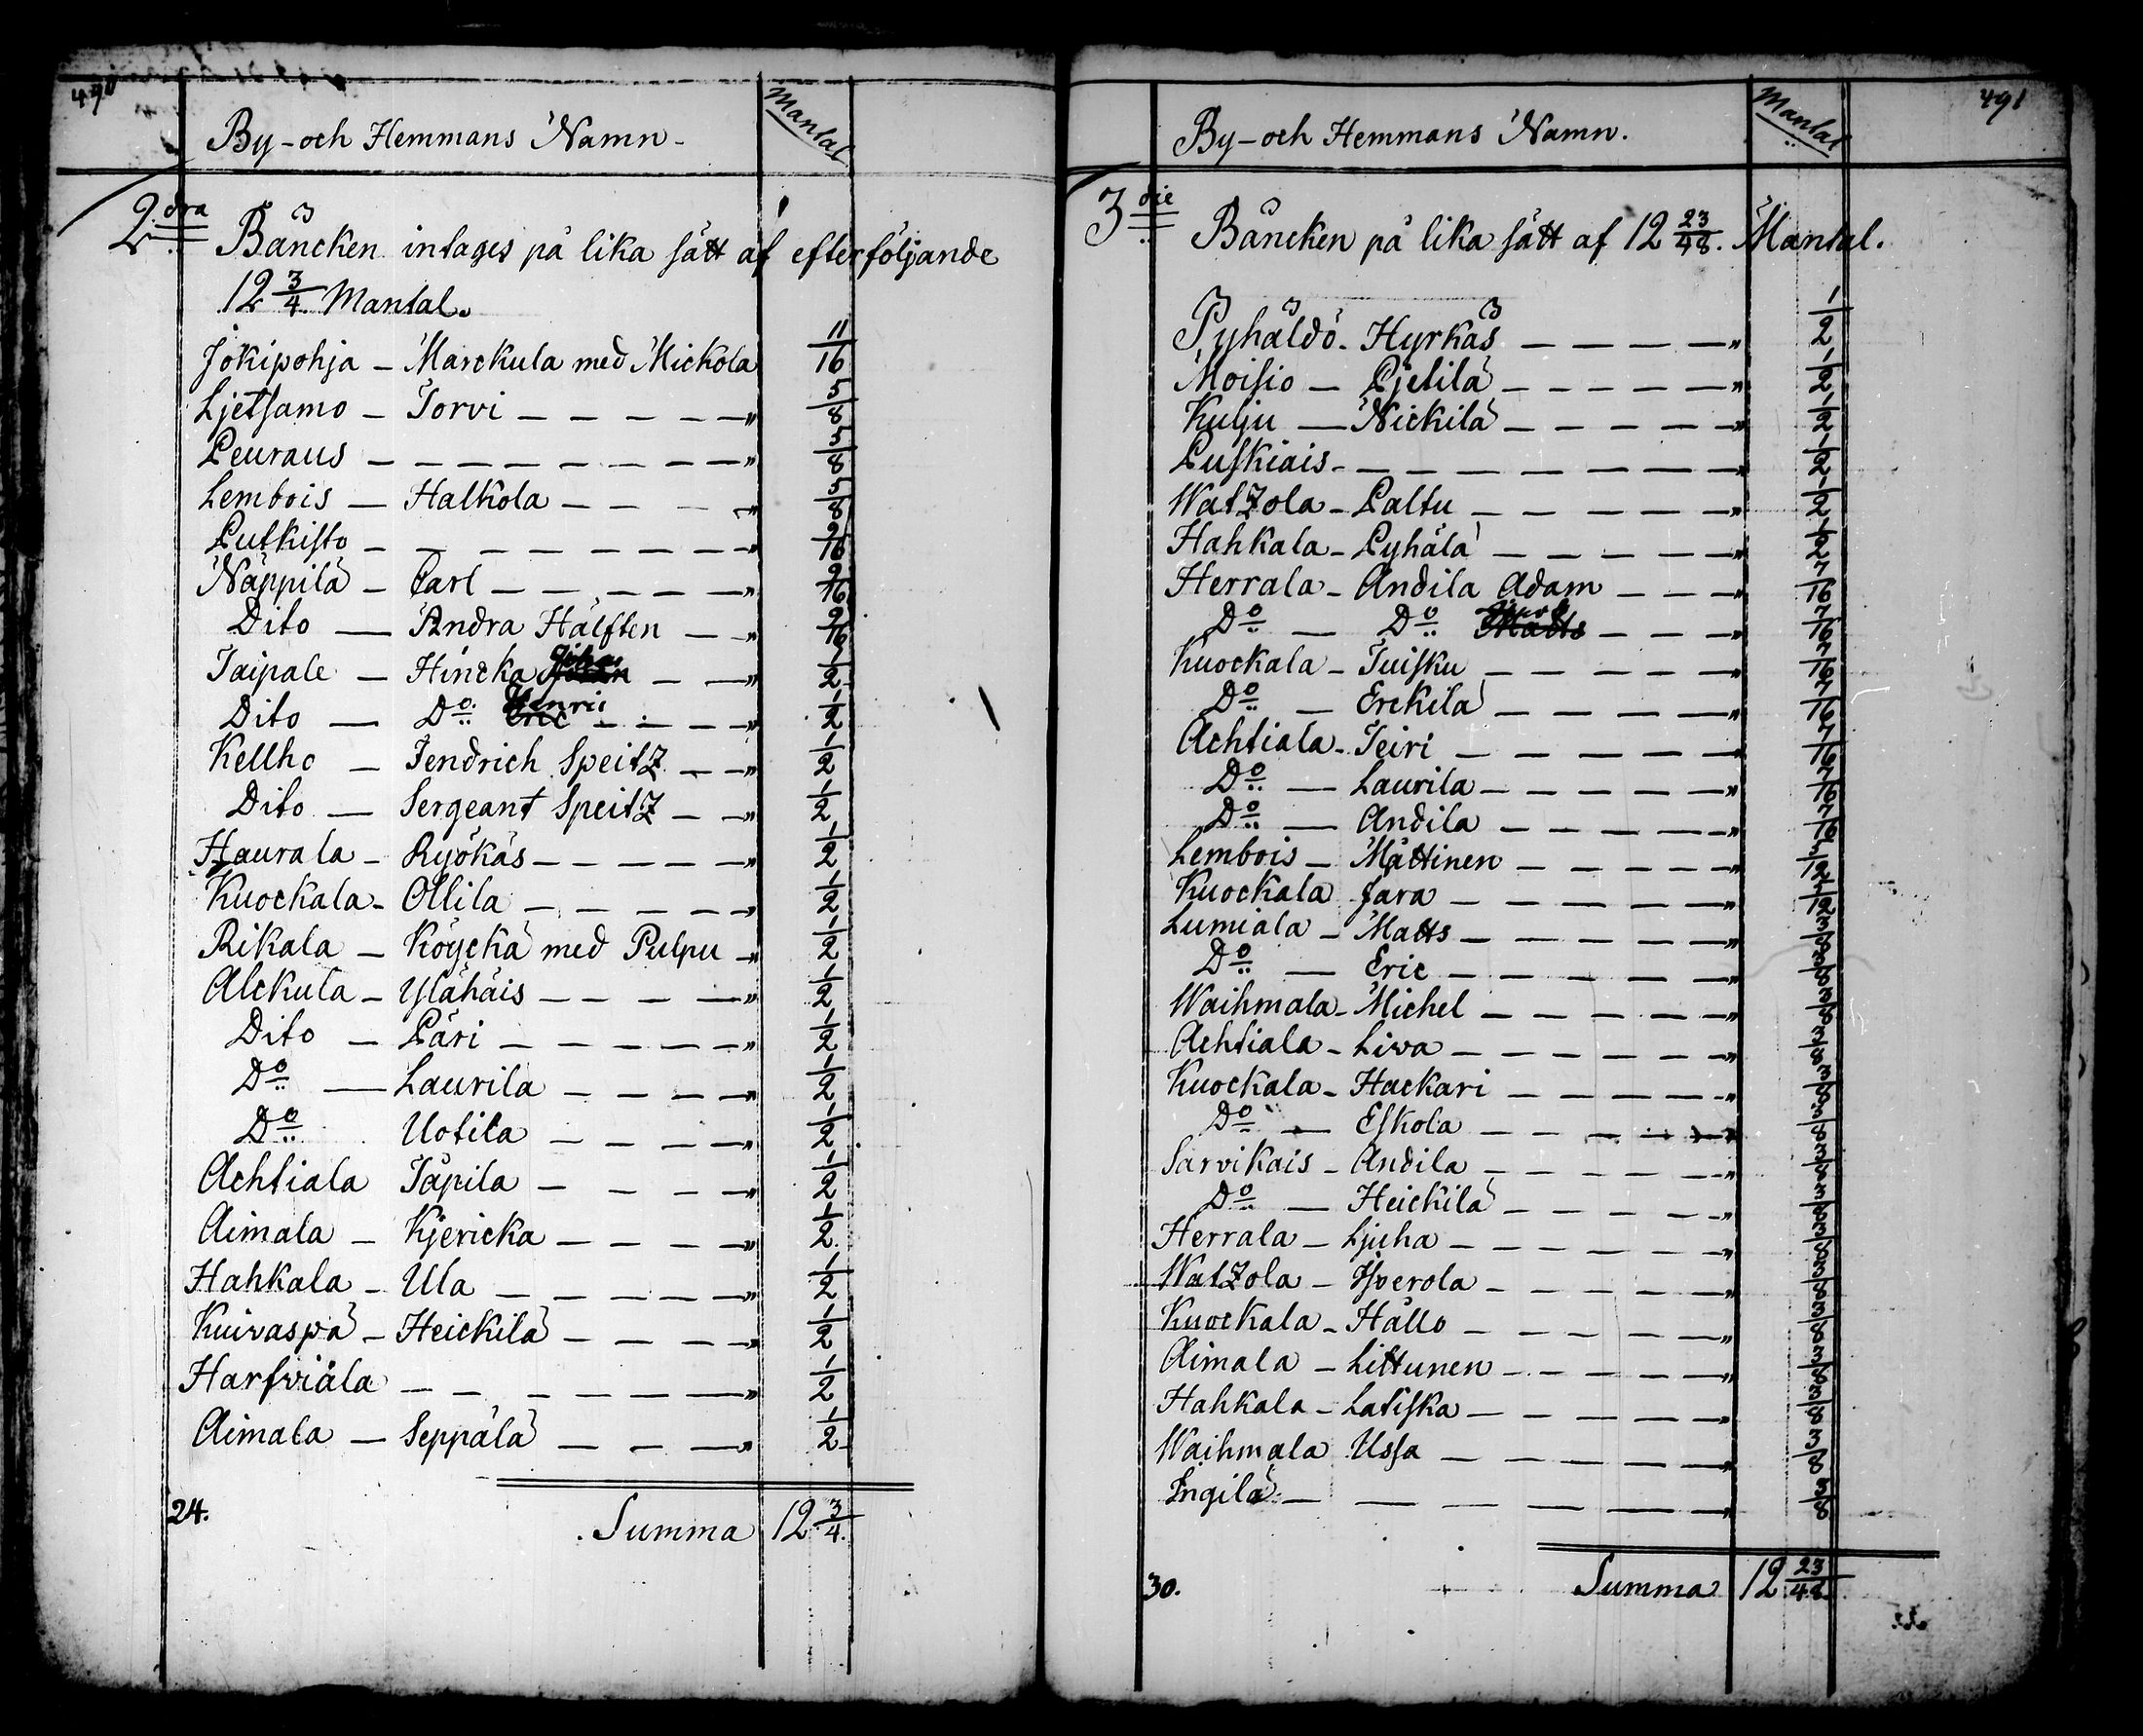 490
By-och Hemmans Namn-
Mantal
2dra Bäncken intages på lika sätt af efterföljande
12 3/4 Mantal.
Jokipohja - Marckula med Mickola 11/16
Ljetsamo - Torvi - - - - - " 5/8
Peuraus - - - - - - - " 5/8
Lembois - Halkola - - - " 5/8
Putkisto - - - - - - - " 9/16
Näppilä - Carl - - - - - " 9/16
Dito - Andra Hälften - - " 9/16
Taipale - Hincka - - " 1/2
Dito - Do Henric Eric - - - " 1/2
Kellho - Jendrich Speitz - - " 1/2
Dito - Sergeant Speitz - - " 1/2
Haurala - Ryökäs - - - - - " 1/2
Kuockala - Ollila - - - - - " 1/2
Rikala - Köyckä med Pulpu - " 1/2
Alckula - Ylähäis - - - - " 1/2
Dito - Päri - - - - - " 1/2
Do - Laurila - - - - " 1/2
Do Uotila - - - - " 1/2
Achtiala Täpilä - - - - " 1/2
Aimala - Kjericka - - - - " 1/2
Hahkala - Ula - - - - - " 1/2
Kuivaspä - Heickilä - - - - " 1/2
Harfviala - - - - - - " 1/2
Aimala - Seppälä - - - " 1/2
24. Summa 12 3/4.
491
By-och Hemmans Namn.
Mantal
3die Bäncken på lika sätt af 12 23/48. Mantal.
Pyhäldö - Hyrkäs - - - - " 1/2
Moisio - Pjetilä - - - - - " 1/2
Kulju - Nickilä - - - - - " 1/2
Puskiais - - - - - - - - " 1/2
Watzola - Paltu - - - - - " 1/2
Hahkala - Pyhälä - - - - - " 1/2
Herrala - Andila Adam - - - " 7/16
Do - Do Matts - - - " 7/16
Kuockala - Tuisku - - - - - " 7/16
Do - Erckilä - - - - - " 7/16
Achtiala - Teiri - - - - - " 7/16
Do - Laurila - - - - - " 7/16
Do - Andila - - - - - " 7/16
Lembois - Mattinen - - - - - "
Kuockala Jara - - - - - "
Lumiala - Matts - - - - - " 3/8
Do - Eric - - - - - " 3/8
Waihmala - Michel - - - - - " 3/8
Achtiala - Liva - - - - - - " 3/8
Kuockala - Hackari - - - - - " 3/8
Do - Eskola - - - - - " 3/8
Sarvikais - Andila - - - - - " 3/8
Do - Heickilä - - - - - " 3/8
Herrala - Ljuha - - - - - - " 3/8
Watzola - Yverola - - - - - " 3/8
Kuockala - Hällo - - - - - " 3/8
Aimala - Littunen - - - - - " 3/8
Hahkala - Latiska - - - - - " 3/8
Waihmala Ussa - - - - - " 3/8
Ingilä - - - - - - " 3/8
30. Summa 12 23/48.